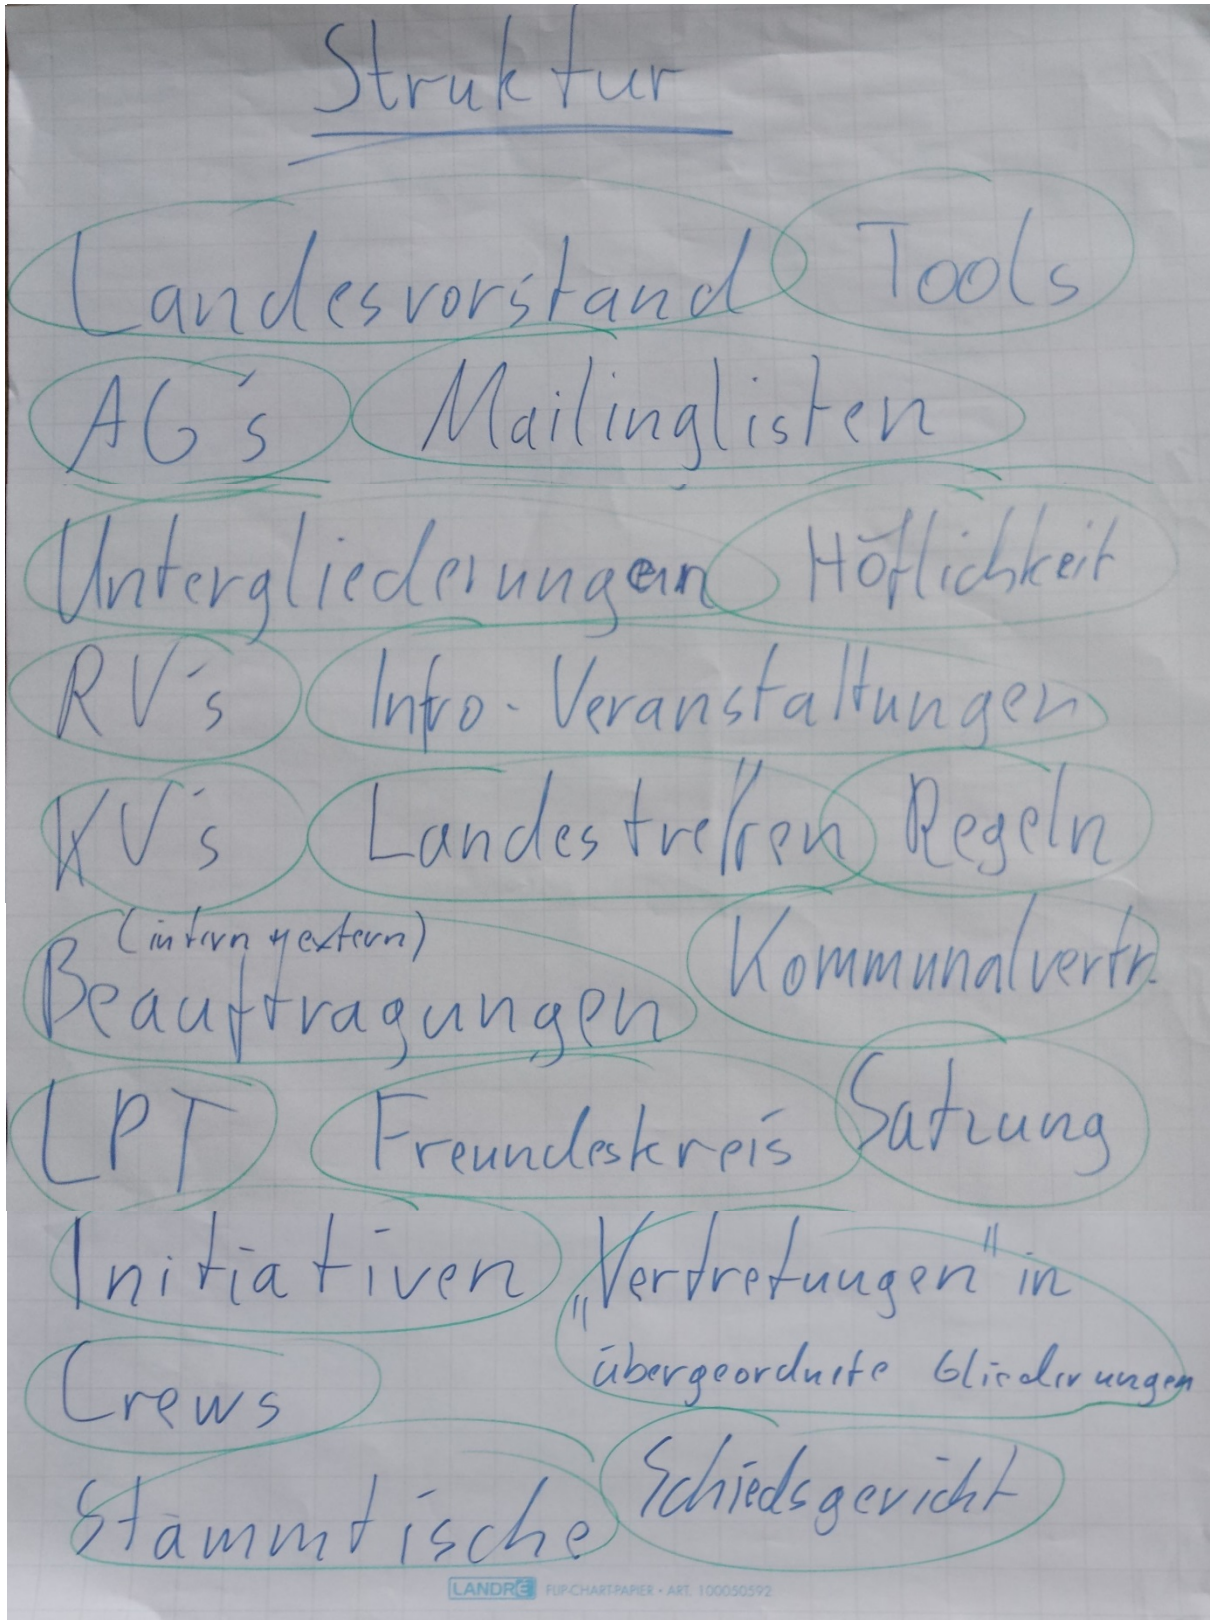 Struktur
Landesvorstand Tools
AG's Mailinglisten
Untergliederungen Höflichkeit
RV's Info-Veranstaltungen
KV's Landestreffen Regeln
(intern + extern)
Beauftragungen Kommunalvertr.
LPT Freundeskreis Satzung
Initiativen „Vertretungen" in
übergeordnete Gliederungen
Crews
Schiedsgericht
Stammtische
LANDRÉ FLIP-CHART-PAPIER • ART. 100050592